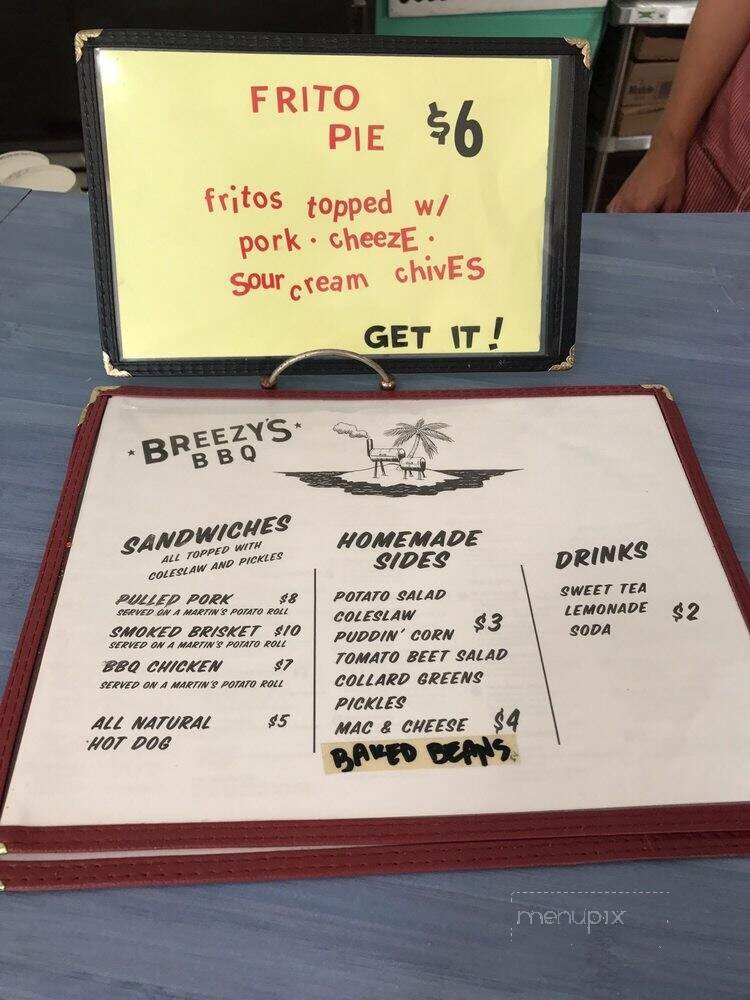 FRITO
PIE $6
fritos topped w/
pork · cheezE ·
Sour cream chivES
GET IT!
BREEZY'S
BBQ
SANDWICHES
ALL TOPPED WITH
COLESLAW AND PICKLES
PULLED PORK $8
SERVED ON A MARTIN'S POTATO ROLL
SMOKED BRISKET $10
SERVED ON A MARTIN'S POTATO ROLL
BBQ CHICKEN $7
SERVED ON A MARTIN'S POTATO ROLL
ALL NATURAL $5
HOT DOG
HOMEMADE
SIDES
POTATO SALAD
COLESLAW
PUDDIN' CORN $3
TOMATO BEET SALAD
COLLARD GREENS
PICKLES
MAC & CHEESE $4
BAKED BEANS
DRINKS
SWEET TEA
LEMONADE $2
SODA
menupix